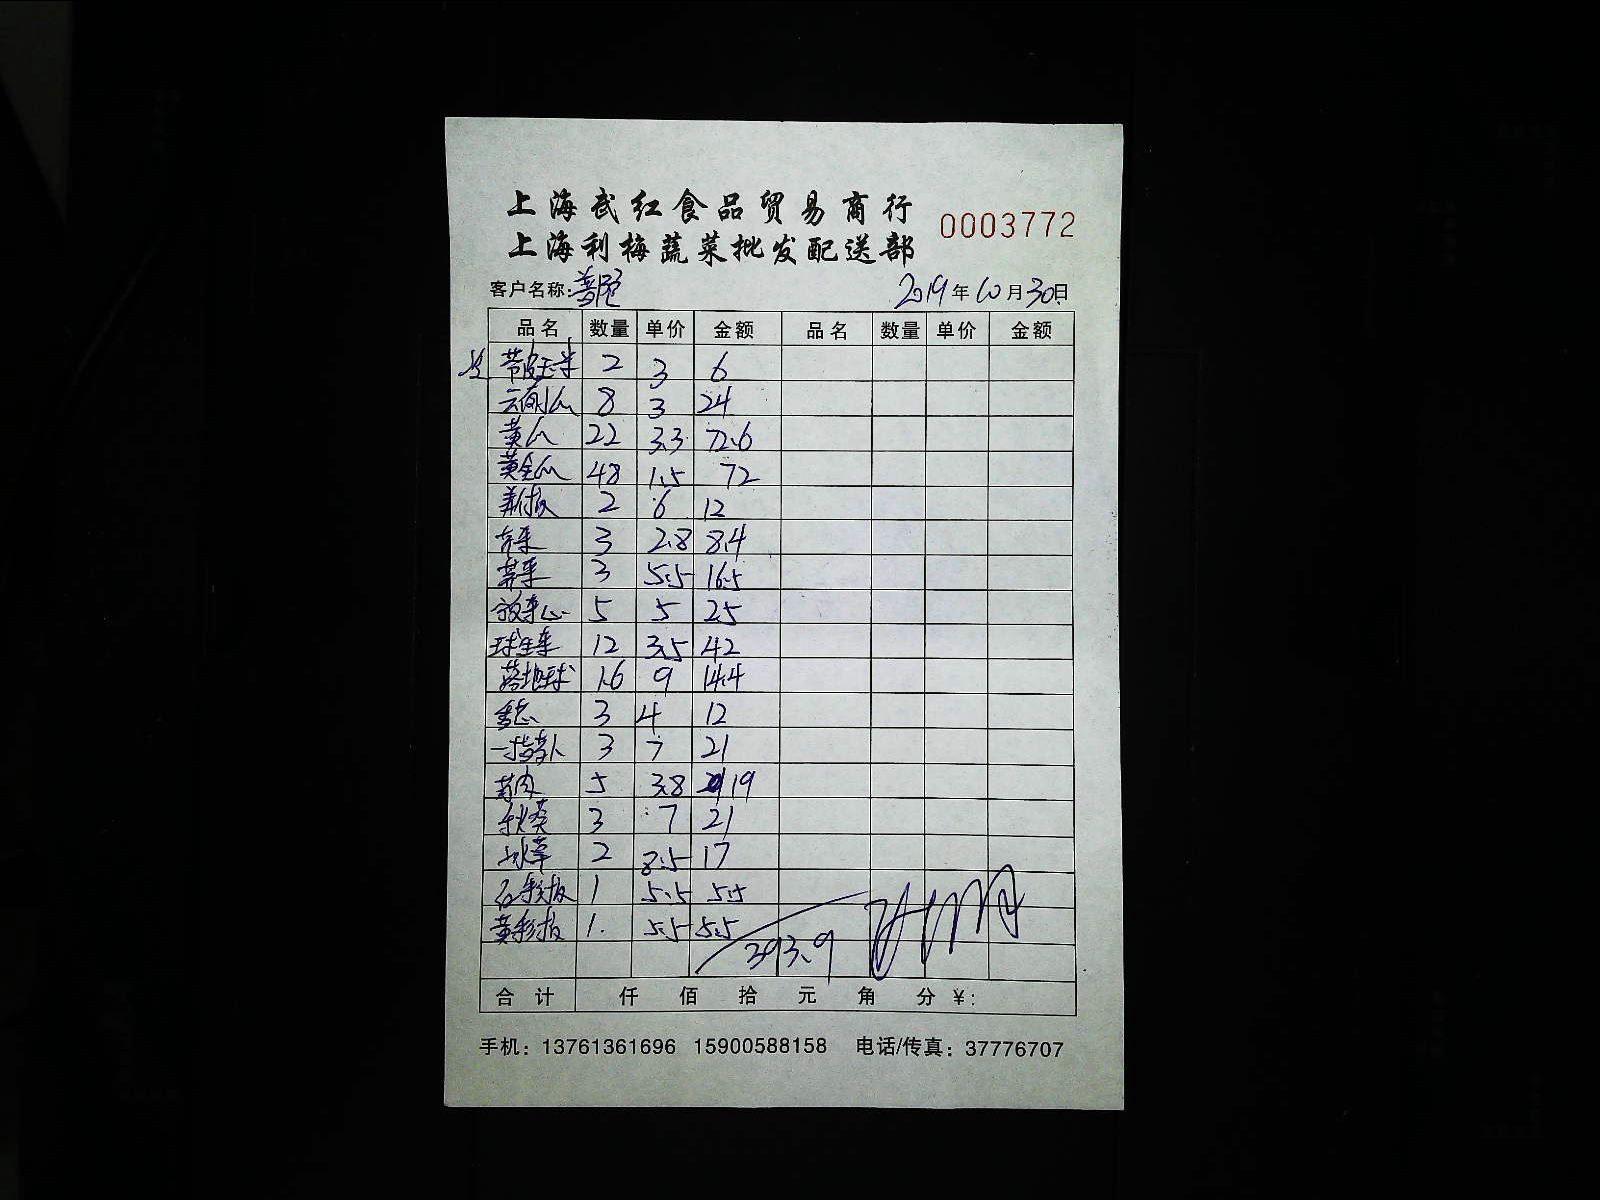 上海武红食品贸易商行
0003772
上海利梅蔬菜批发配送部
客户名称:
2019年10月30日
品名 数量 单价 金额 品名 数量 单价 金额
带皮玉米 2 3 6
云南小瓜 8 3 24
黄瓜 22 3.3 72.6
黄金瓜 48 1.5 72
2 6 12
3 2.8 8.4
3 5.5 16.5
5 5 25
球生菜 12 3.5 42
1.6 9 14.4
3 4 12
3 7 21
5 3.8 19
秋葵 3 7 21
2 8.5 17
1 5.5 5.5
黄彩椒 1. 5.5 5.5
393.9
合计 仟 佰 拾 元 角 分 ¥:
手机：13761361696 15900588158 电话/传真：37776707